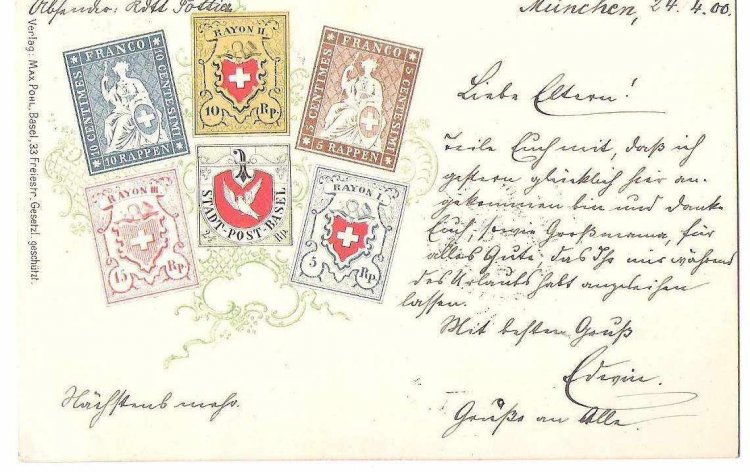 Absender: Rdtt
München, 24. 4. 00.
Verlag: MAX POHL, Basel, 33 Freiestr. Gesetzl. geschützt.
FRANCO
10 CENTIMES
10 CENTESIMI
10 RAPPEN
RAYON II.
10 Rp.
FRANCO
5 CENTIMES
5 CENTESIMI
5 RAPPEN
RAYON III.
15 Rp.
STADT-POST-BASEL
2½ Rp.
RAYON I.
5 Rp.
Liebe Eltern!
Teile Euch mit, daß ich
gestern glücklich hier an-
gekommen bin und danke
Euch, sowie Großmama, für
alles Gute das Ihr mir während
des Urlaubs habt angedeihen
lassen.
Mit besten Gruß
Edwin.
Grüße an Alle.
Nächstens mehr.